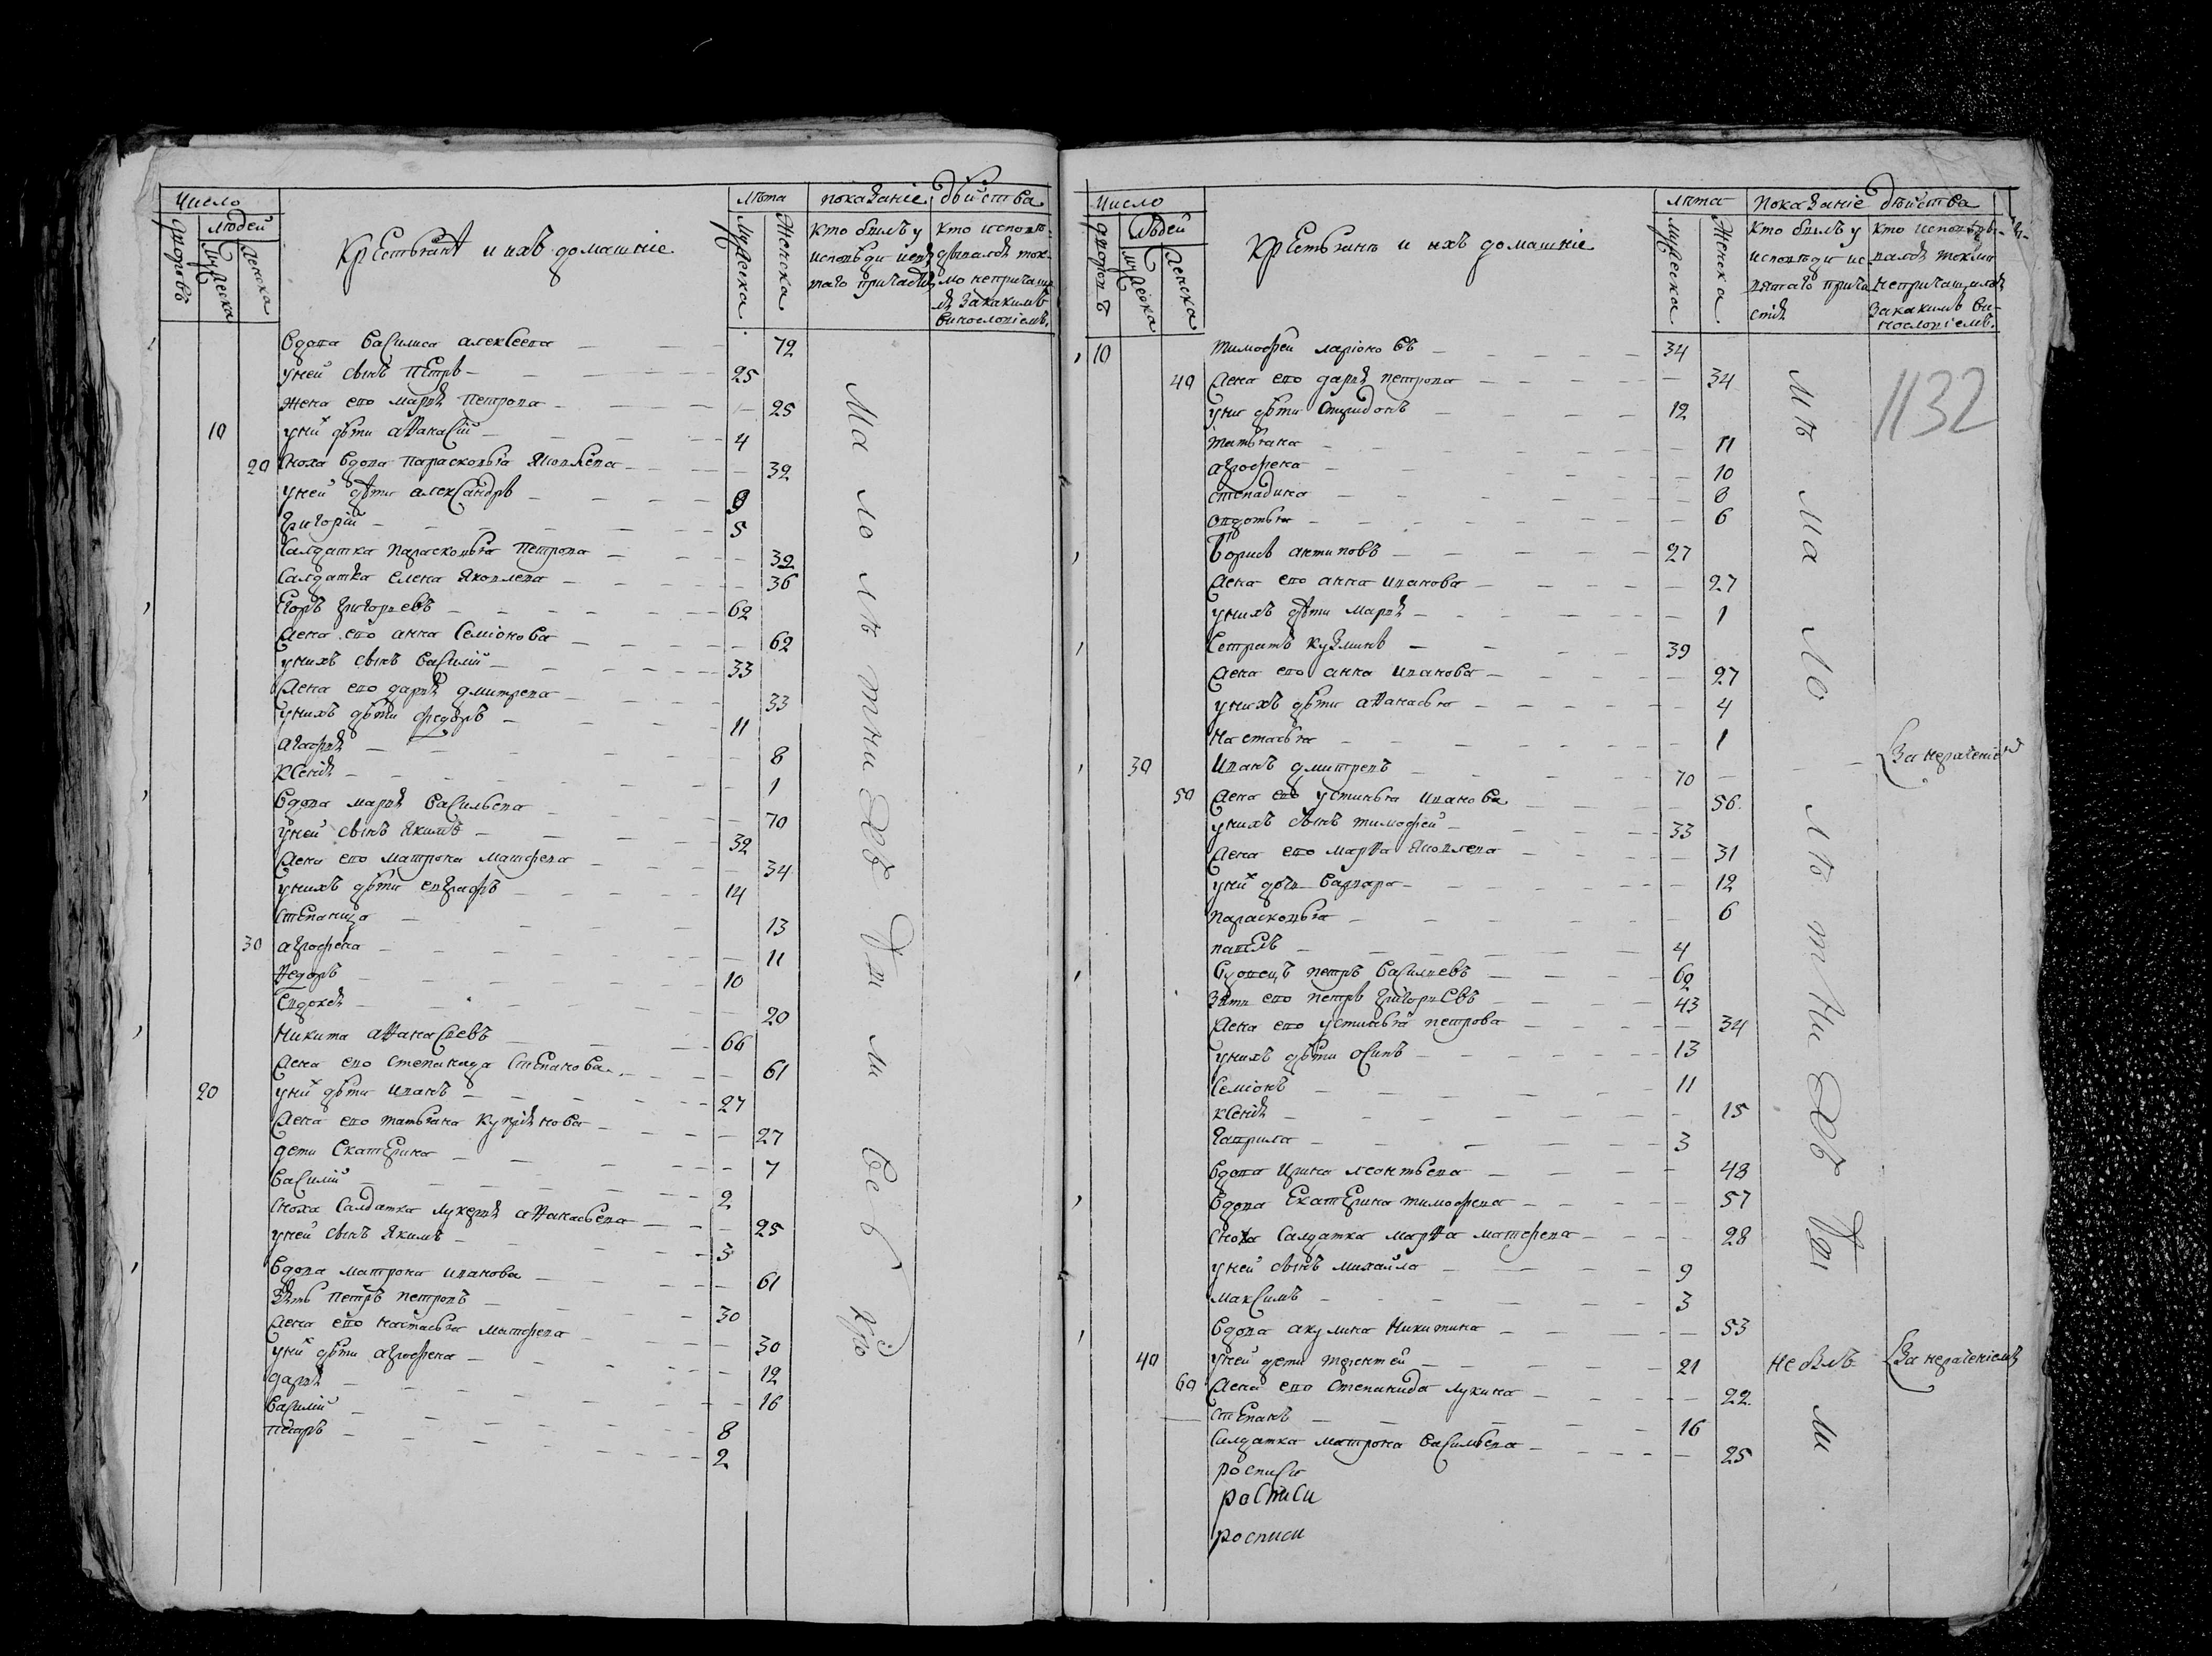 Число
дворовъ
людей
мужеска
женска
крестьянѣ и ихъ домашніе
лѣта
мужеска
женска
показаніе дѣйства
кто былъ у
исповѣди и свя
таго причастія
кто исповѣ-
дывался ток-
мо не причащал
ся за какимъ
винословіемъ.
вдова василиса алексеева 72
у ней сынъ петръ 25
жена ево марья петрова 25
10 у них дѣти аѳанасіи 4
20 сноха вдова парасковья яковлева 32
у ней дѣти александръ 9
григоріи 5
салдатка парасковья петрова 32
салдатка елена яковлева 36
егоръ григорьевъ 62
жена ево анна семіонова 62
у нихъ сынъ василіи 33
жена ево дарья дмитрева 33
у нихъ дѣти федоръ 11
агафья 8
ксенія 1
вдова марья васильева 70
у ней сынъ якимъ 32
жена ево матрона матфева 34
у нихъ дѣти евграфъ 14
степанида 13
30 аграфена 11
ѳедоръ 10
евдокея 20
никита аѳанасьевъ 66
жена ево степанида степанова 61
20 у них дѣти иванъ 27
жена ево татьяна купріянова 27
дети екатерина 7
василіи 2
сноха салдатка лукерья аѳанасьева 25
у ней сынъ якимъ 3
вдова матрона иванова 61
зять петръ петровъ 30
жена ево настасья матфева 30
у них дѣти аграфена 12
дарья 16
василіи 8
петръ 2
Ма ло лѣ тни
Число
дворовъ
людей
мужеска
женска
крестьянѣ и ихъ домашніе
лѣта
мужеска
женска
показаніе дѣйства
кто былъ у
исповѣди и с
вятаго прича
стія
кто исповѣды-
вался токмо
не причащался
за какимъ ви-
нословіемъ.
1132
10 тимофеи ларіоновъ 34
40 жена ево дарья петрова 34
у них дѣти спиридонъ 12
татьяна 11
аграфена 10
степанида 8
авдотья 6
борисъ антиповъ 27
жена ево анна иванова 27
у нихъ дѣти марья 1
евстратъ кузминъ 39
жена ево анна иванова 27
у нихъ дѣти аѳанасья 4
настасья 1
30 иванъ дмитревъ 70 за нераченіемъ
50 жена ево устинья иванова 56
у нихъ сынъ тимофеи 33
жена ево марѳа яковлева 31
у них дочь варвара 12
парасковья 6
павелъ 4
вдовецъ петръ васильевъ 62
зять ево петръ григорьевъ 43
жена ево устинья петрова 34
у нихъ дѣти осипъ 13
семіонъ 11
ксенія 15
гаврила 3
вдова ирина леонтьева 48
вдова екатерина тимофева 57
сноха салдатка марѳа матфева 28
у ней сынъ михаила 9
максимъ 3
вдова акулина никитина 53
40 у ней дети терентеи 21 не былъ за нераченіемъ
60 жена ево степанида лукина 22
степанъ 16
салдатка матрона васильева 25
росписи
росписи
росписи
ма ло лѣ тни